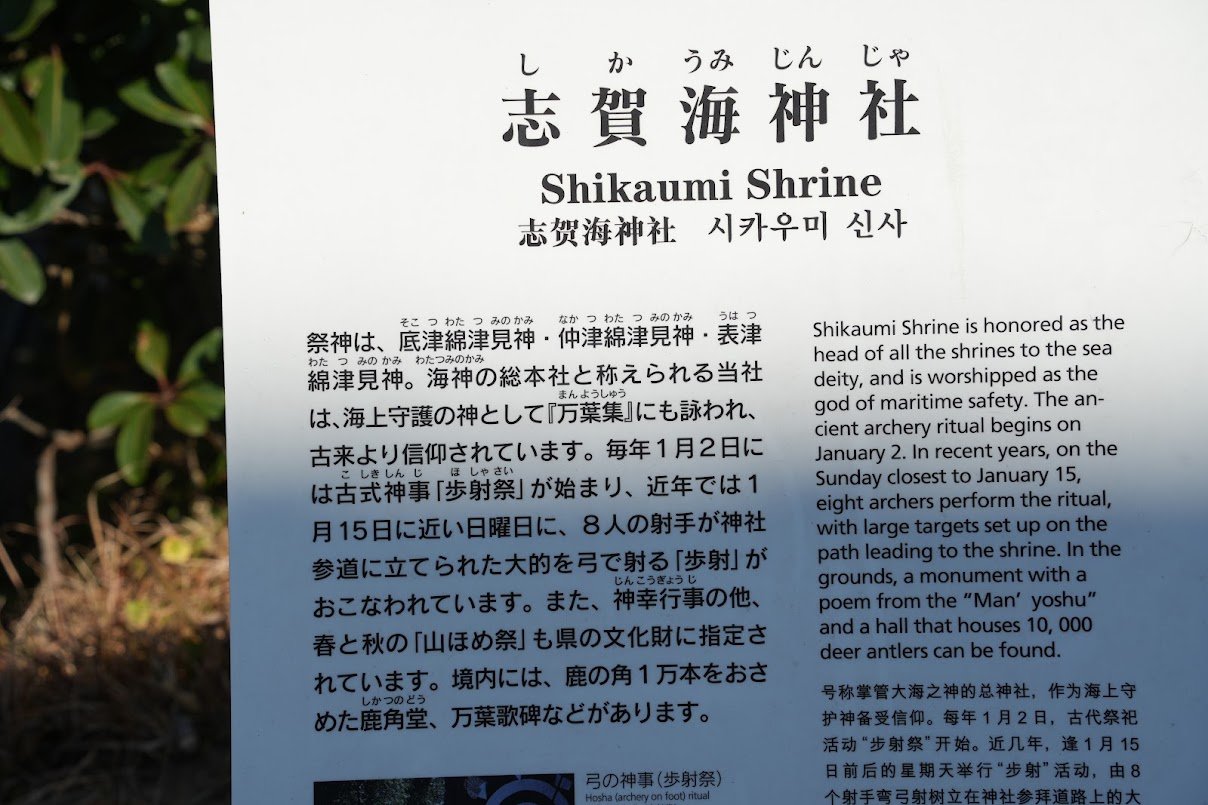 しかうみじんじゃ
志賀海神社
Shikaumi Shrine
志贺海神社 시카우미 신사
そこつわたつみのかみ なかつわたつみのかみ うはつ
祭神は、底津綿津見神・仲津綿津見神・表津
わたつみのかみ わたつみのかみ
綿津見神。海神の総本社と称えられる当社
まんようしゅう
は、海上守護の神として『万葉集』にも詠われ、
古来より信仰されています。毎年1月2日に
こしきしんじ ほしゃさい
は古式神事「歩射祭」が始まり、近年では1
月15日に近い日曜日に、8人の射手が神社
参道に立てられた大的を弓で射る「歩射」が
じんこうぎょうじ
おこなわれています。また、神幸行事の他、
春と秋の「山ほめ祭」も県の文化財に指定さ
れています。境内には、鹿の角1万本をおさ
しかつのどう
めた鹿角堂、万葉歌碑などがあります。
Shikaumi Shrine is honored as the
head of all the shrines to the sea
deity, and is worshipped as the
god of maritime safety. The an-
cient archery ritual begins on
January 2. In recent years, on the
Sunday closest to January 15,
eight archers perform the ritual,
with large targets set up on the
path leading to the shrine. In the
grounds, a monument with a
poem from the "Man' yoshu"
and a hall that houses 10, 000
deer antlers can be found.
号称掌管大海之神的总神社，作为海上守
护神备受信仰。每年1月2日，古代祭祀
活动“步射祭”开始。近几年，逢1月15
日前后的星期天举行“步射”活动，由8
个射手弯弓射树立在神社参拜道路上的大
弓の神事（歩射祭）
Hosha (archery on foot) ritual